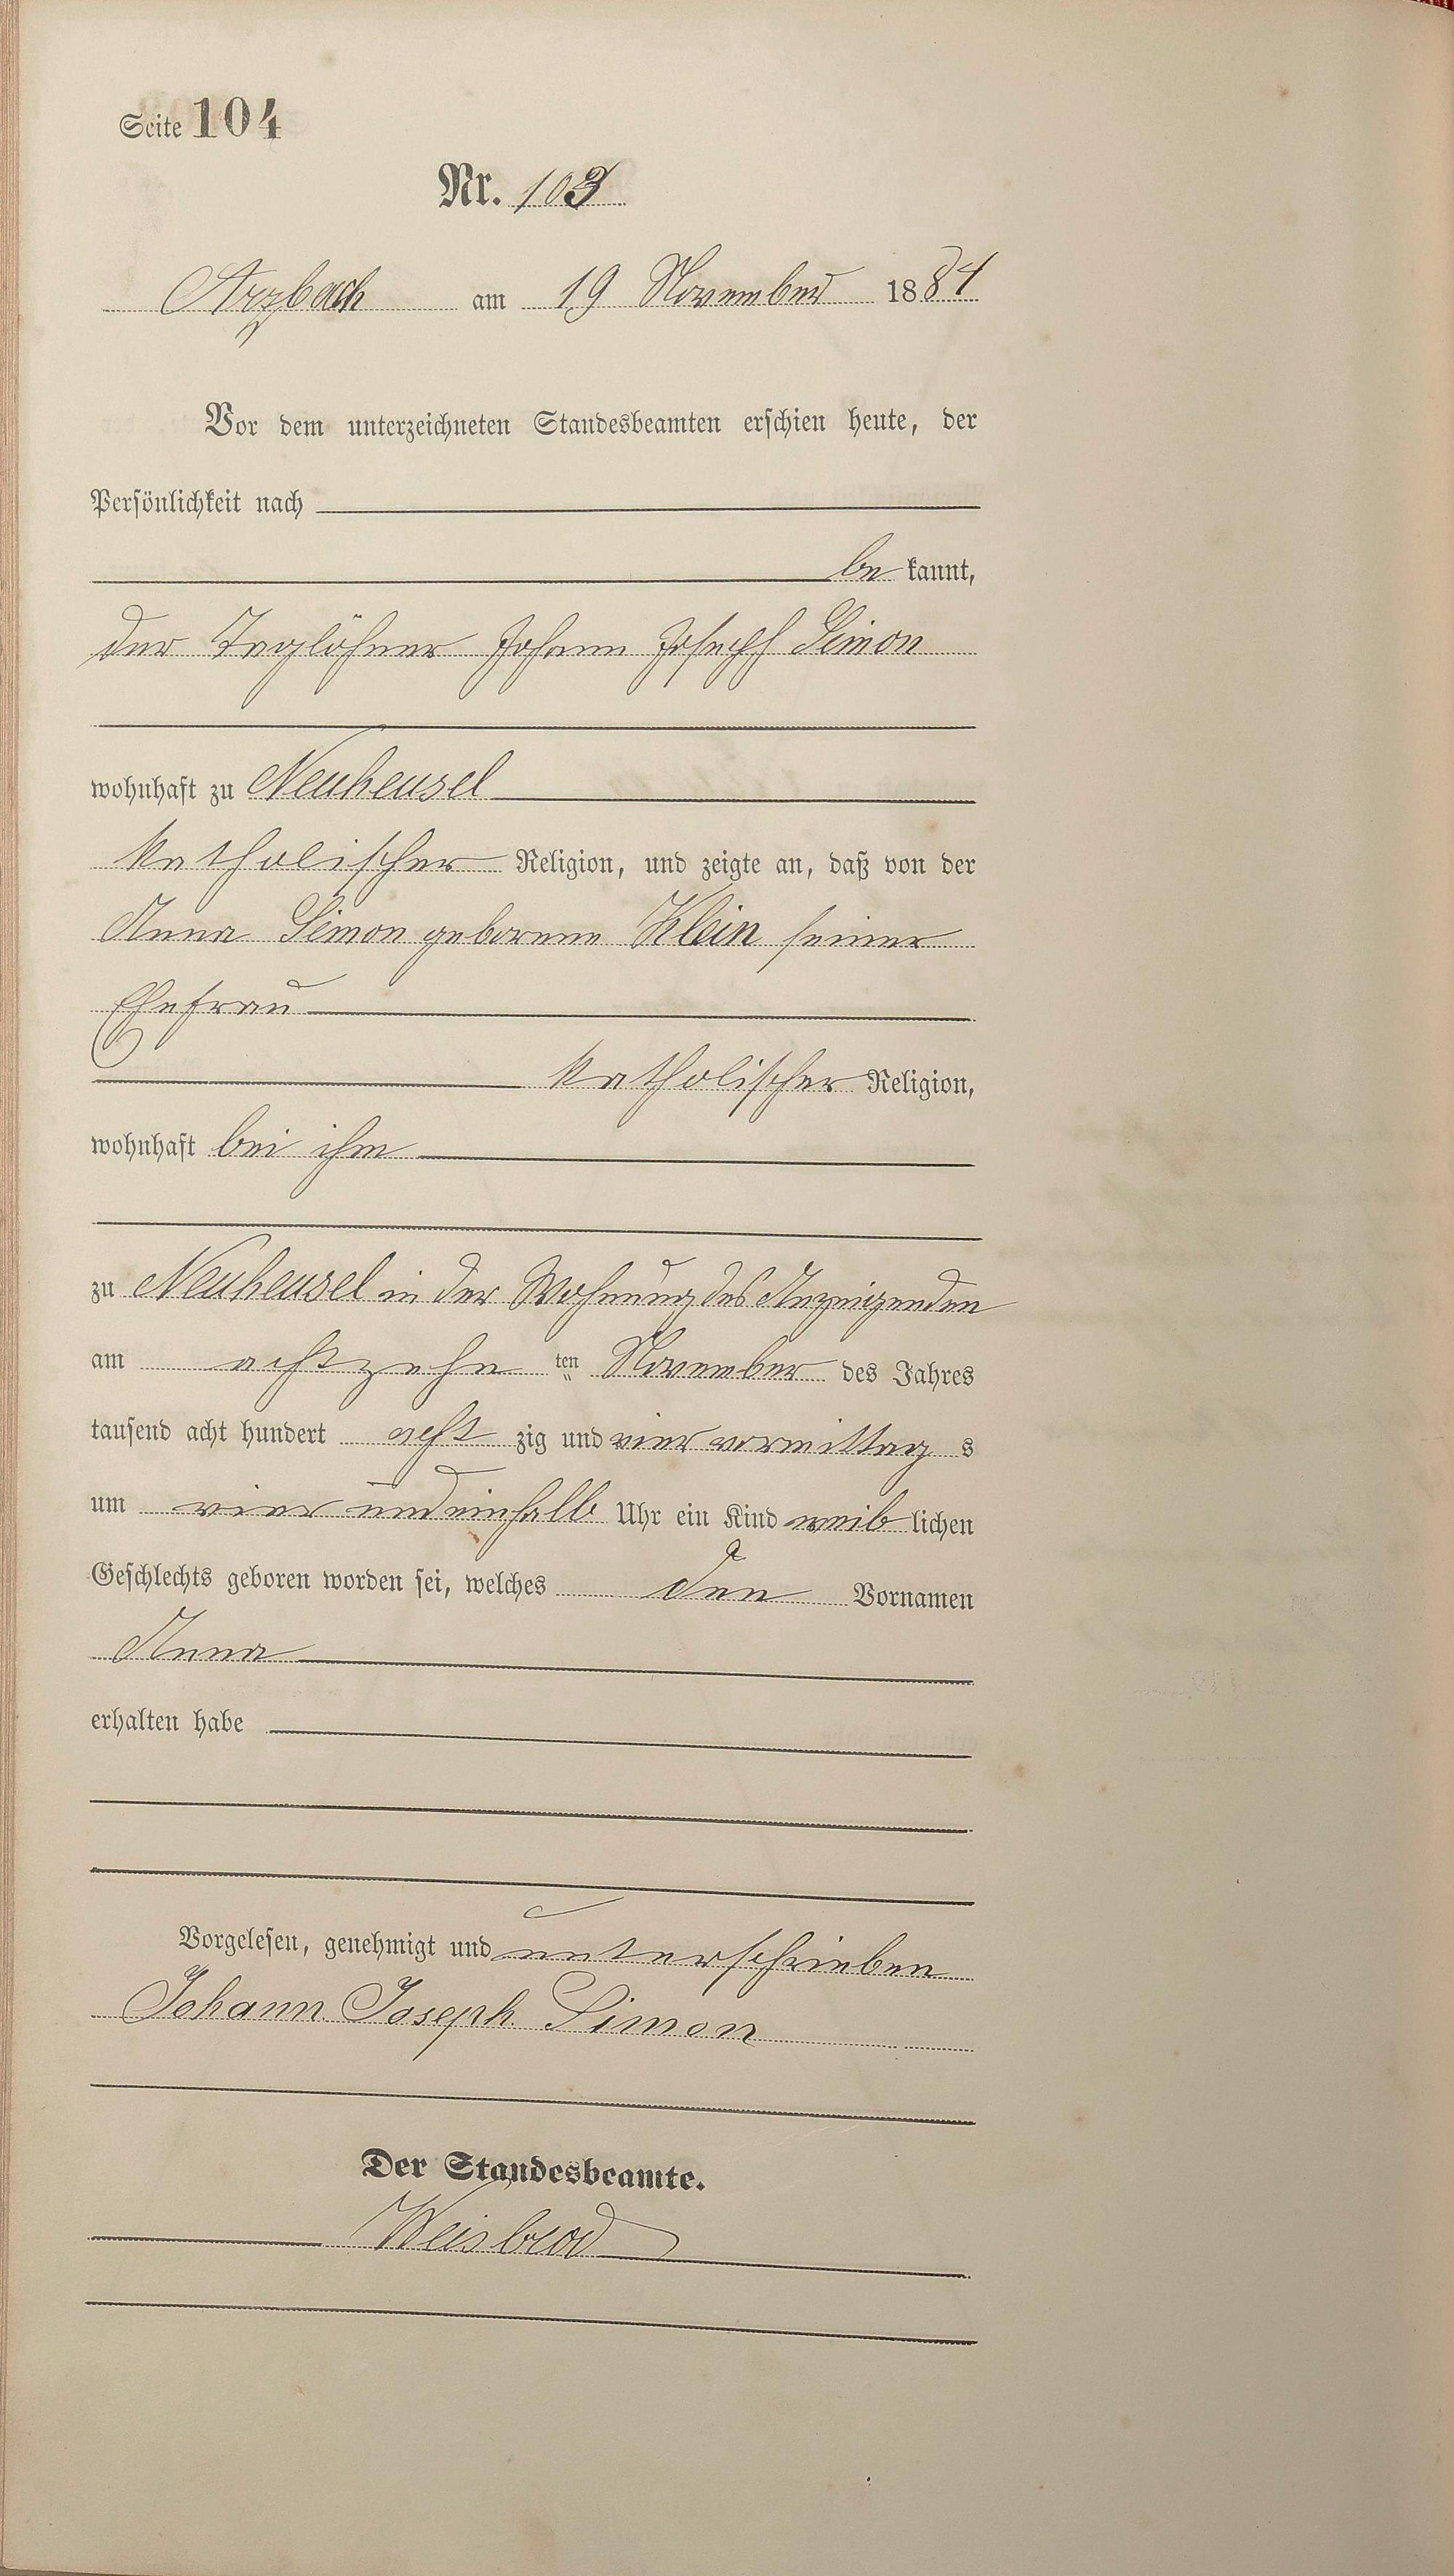 Seite 104
Nr. 103
Arzbach am 19 November 1884
Vor dem unterzeichneten Standesbeamten erschien heute, der
Persönlichkeit nach
be kannt,
der Taglöhner Johann Joseph Simon
wohnhaft zu Neuheusel
katholischer Religion, und zeigte an, daß von der
Anna Simon geborene Klein seiner
Ehefrau
katholischer Religion,
wohnhaft bei ihm
zu Neuheusel in der Wohnung des Anzeigenden
am achtzehn ten November des Jahres
tausend acht hundert acht zig und vier vormittag s
um vier und einhalb Uhr ein Kind weib lichen
Geschlechts geboren worden sei, welches den Vornamen
Anna
erhalten habe
Vorgelesen, genehmigt und unterschrieben
Johann Joseph Simon
Der Standesbeamte.
Weisbrod